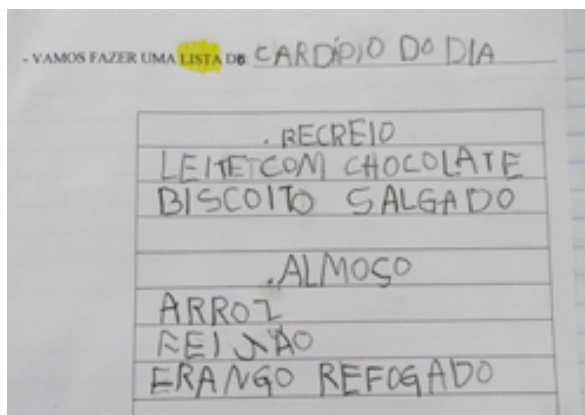 - VAMOS FAZER UMA LISTA DE CARDÍPIO DO DIA
. RECREIO
LEITE COM CHOCOLATE
BISCOITO SALGADO
. ALMOÇO
ARROZ
FEIJÃO
FRANGO REFOGADO